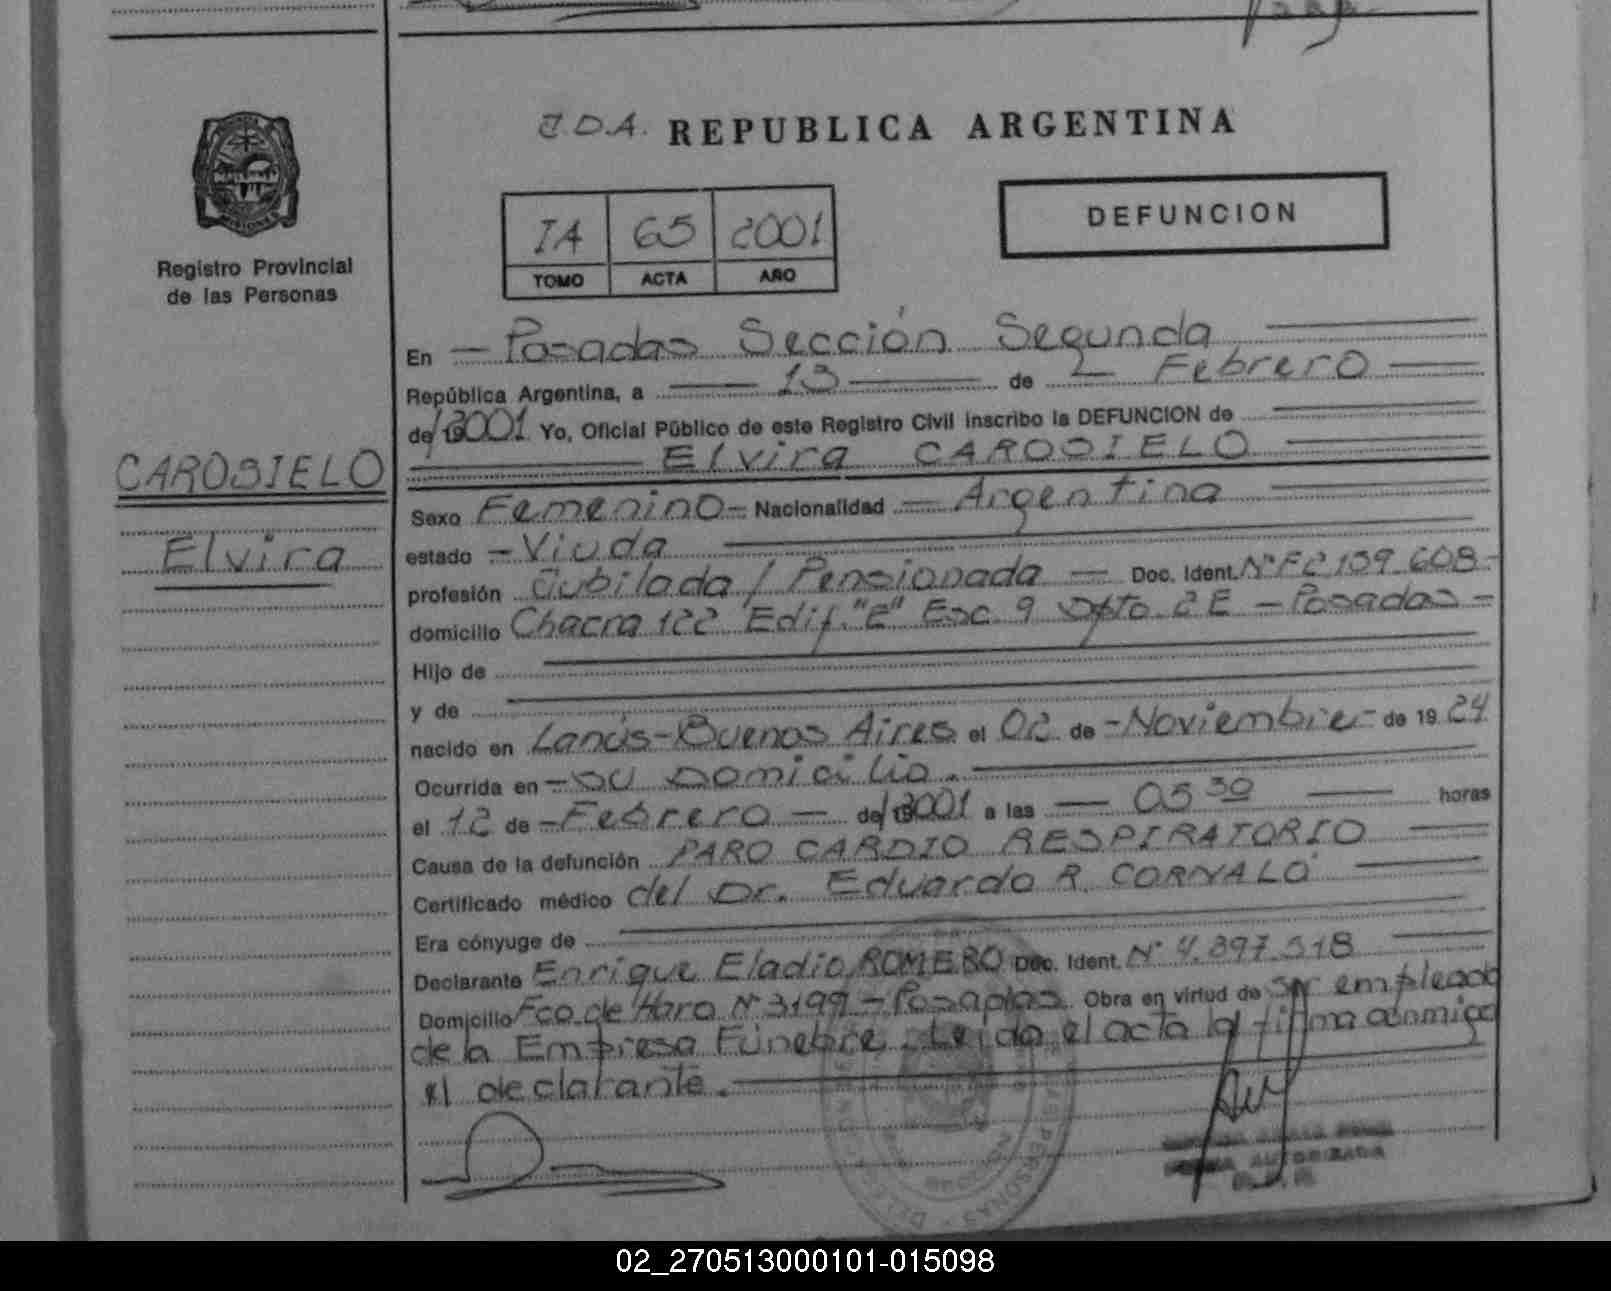 J.D.A. REPUBLICA ARGENTINA
DEFUNCION
IA 65 2001
TOMO ACTA AÑO
Registro Provincial
de las Personas
En - Posadas Sección Segunda
República Argentina, a 13 de Febrero
de 2001 Yo, Oficial Público de este Registro Civil inscribo la DEFUNCION de
Elvira CAROSIELO
CAROSIELO
Elvira
Sexo Femenino - Nacionalidad - Argentina
estado - Viuda
profesión Jubilada / Pensionada - Doc. Ident. Nº F2 139 608 -
domicilio Chacra 122 Edif. "E" Esc. 9 Dpto. 2 E - Posadas -
Hijo de
y de
nacido en Lanús - Buenos Aires el 02 de - Noviembre - de 19 24
Ocurrida en - su Domicilio.
el 12 de - Febrero - de 2001 a las 05 30 horas
Causa de la defunción PARO CARDIO RESPIRATORIO
Certificado médico del Dr. Eduardo R. CORNALO
Era cónyuge de
Declarante Enrique Eladio ROMERO Doc. Ident. Nº 4.897.318
Domicilio Fco de Haro Nº 3199 - Posadas Obra en virtud de ser empleado
de la Empresa Fúnebre. Leida el acta la firma conmigo
el declarante.
AUTORIZADA
02_270513000101-015098